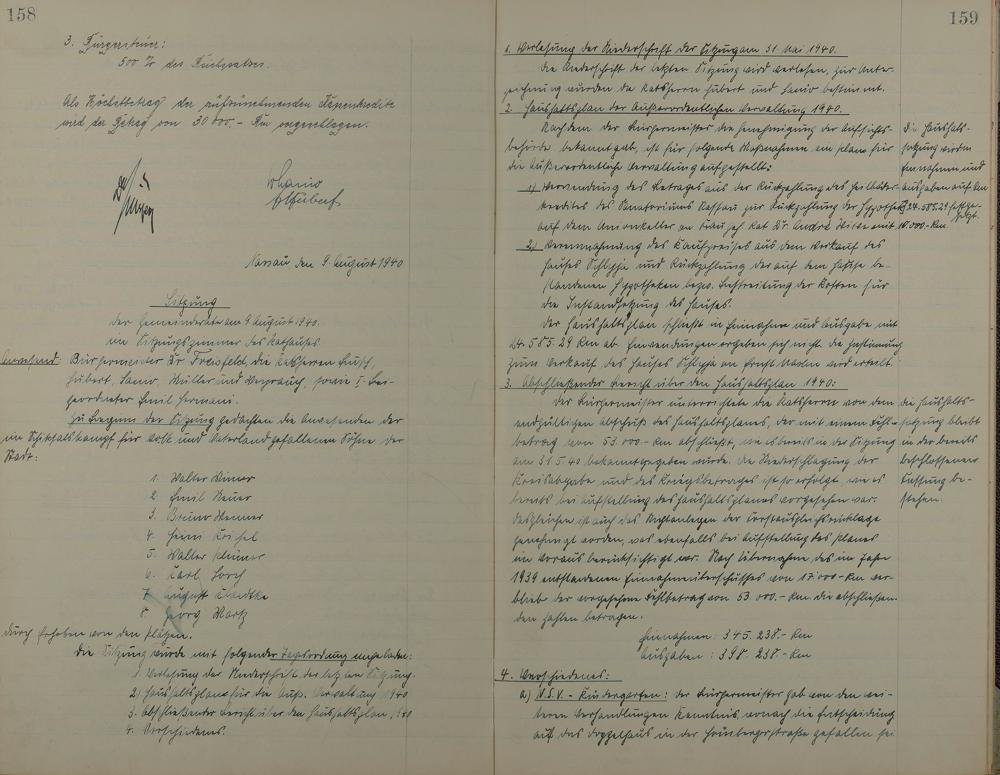 158
3. Bürgersteuer:
500 % des Reichssatzes.
Als Höchstbetrag der aufzunehmenden Kassenkredite
wird der Betrag von 30 000.- Rm vorgeschlagen.
Hubert
Nassau, den 9. August 1940
Sitzung
der Gemeinderäte am 9. August 1940.
im Sitzungszimmer des Rathauses.
Anwesend: Bürgermeister Dr. die Ratsherren Busch,
Hubert, Müller und sowie I. Bei-
geordneter Emil Hermani.
Zu Beginn der Sitzung gedachten die Anwesenden der
im Schicksalskampf für Volk und Vaterland gefallenen Söhne der
Stadt:
1. Walter
2. Emil
3. Bruno
4. Heini
5. Walter
6. Karl
7. August
8. Georg
durch Erheben von den Plätzen.
Die Sitzung wurde mit folgender Tagesordnung eingeladen:
1. Verlesung der Niederschrift der letzten Sitzung.
2. Haushaltsplan für die Auß. Verwaltung 1940
3. Abschließender Bericht über den Haushaltsplan 1940
4. Verschiedenes.
159
1. Verlesung der Niederschrift der Sitzung am 31. Mai 1940.
Die Niederschrift der letzten Sitzung wird verlesen, zur Unter-
zeichnung wurden die Ratsherren Hubert und bestimmt.
2. Haushaltsplan der Außerordentlichen Verwaltung 1940.
Nachdem der Bürgermeister die Genehmigung der Aufsichts-
behörde bekanntgab, ist für folgende Maßnahmen ein Plan für
die Außerordentliche Verwaltung aufgestellt:
1) Verwendung des Betrages aus der Rückzahlung des
kredites des Sanatoriums Nassau zur Rückzahlung der Hypothek
auf dem Unionkeller an Frau Rat Dr. André mit 10.000.- Rm.
2) Vereinnahmung des Kaufpreises aus dem Verkauf des
Hauses und Rückzahlung der auf dem Hause be-
standenen Hypotheken bezw. Bestreitung der Kosten für
die Instandsetzung des Hauses.
Der Haushaltsplan schließt in Einnahme und Ausgabe mit
24.585.29 Rm ab. Einwendungen ergeben sich nicht. Die Zustimmung
zum Verkauf des Hauses an Ernst wird erteilt.
Die Haushalts-
satzung wird in
Einnahmen und
Ausgaben auf Rm
24.585.29 festge-
setzt.
3. Abschließender Bericht über den Haushaltsplan 1940:
Der Bürgermeister unterrichtete die Ratsherren von dem
endgültigen Abschluß des Haushaltsplanes, der mit einem Fehl-
betrag von 53.000.- Rm abschließt, wie es bereits in der Sitzung
am 31.5.40 bekanntgegeben wurde. Die Niederschlagung der
Kreisabgabe und des Kriegsbetrages ist so erfolgt, wie es
bereits bei Aufstellung des Haushaltsplanes vorgesehen war.
Desgleichen ist auch das Nichtanlegen der Forstausgleichsrücklage
genehmigt worden, was ebenfalls bei Aufstellung des Planes
im voraus berücksichtigt war. Nach Übernahme des im Jahre
1939 entstandenen Einnahmeüberschusses von 17.000.- Rm ver-
blieb der vorgesehene Fehlbetrag von 53.000.- Rm. Die abschließen-
den Zahlen betragen:
Einnahmen: 345.238.- Rm
Ausgaben: 398.238.- Rm
Die Haushalts-
satzung bleibt
in der bereits
beschlossenen
Fassung be-
stehen.
4. Verschiedenes:
a) N.S.V.- Kindergarten: Der Bürgermeister gab von den wei-
teren Verhandlungen Kenntnis, wonach die Entscheidung
auf das Doppelhaus in der straße gefallen sei